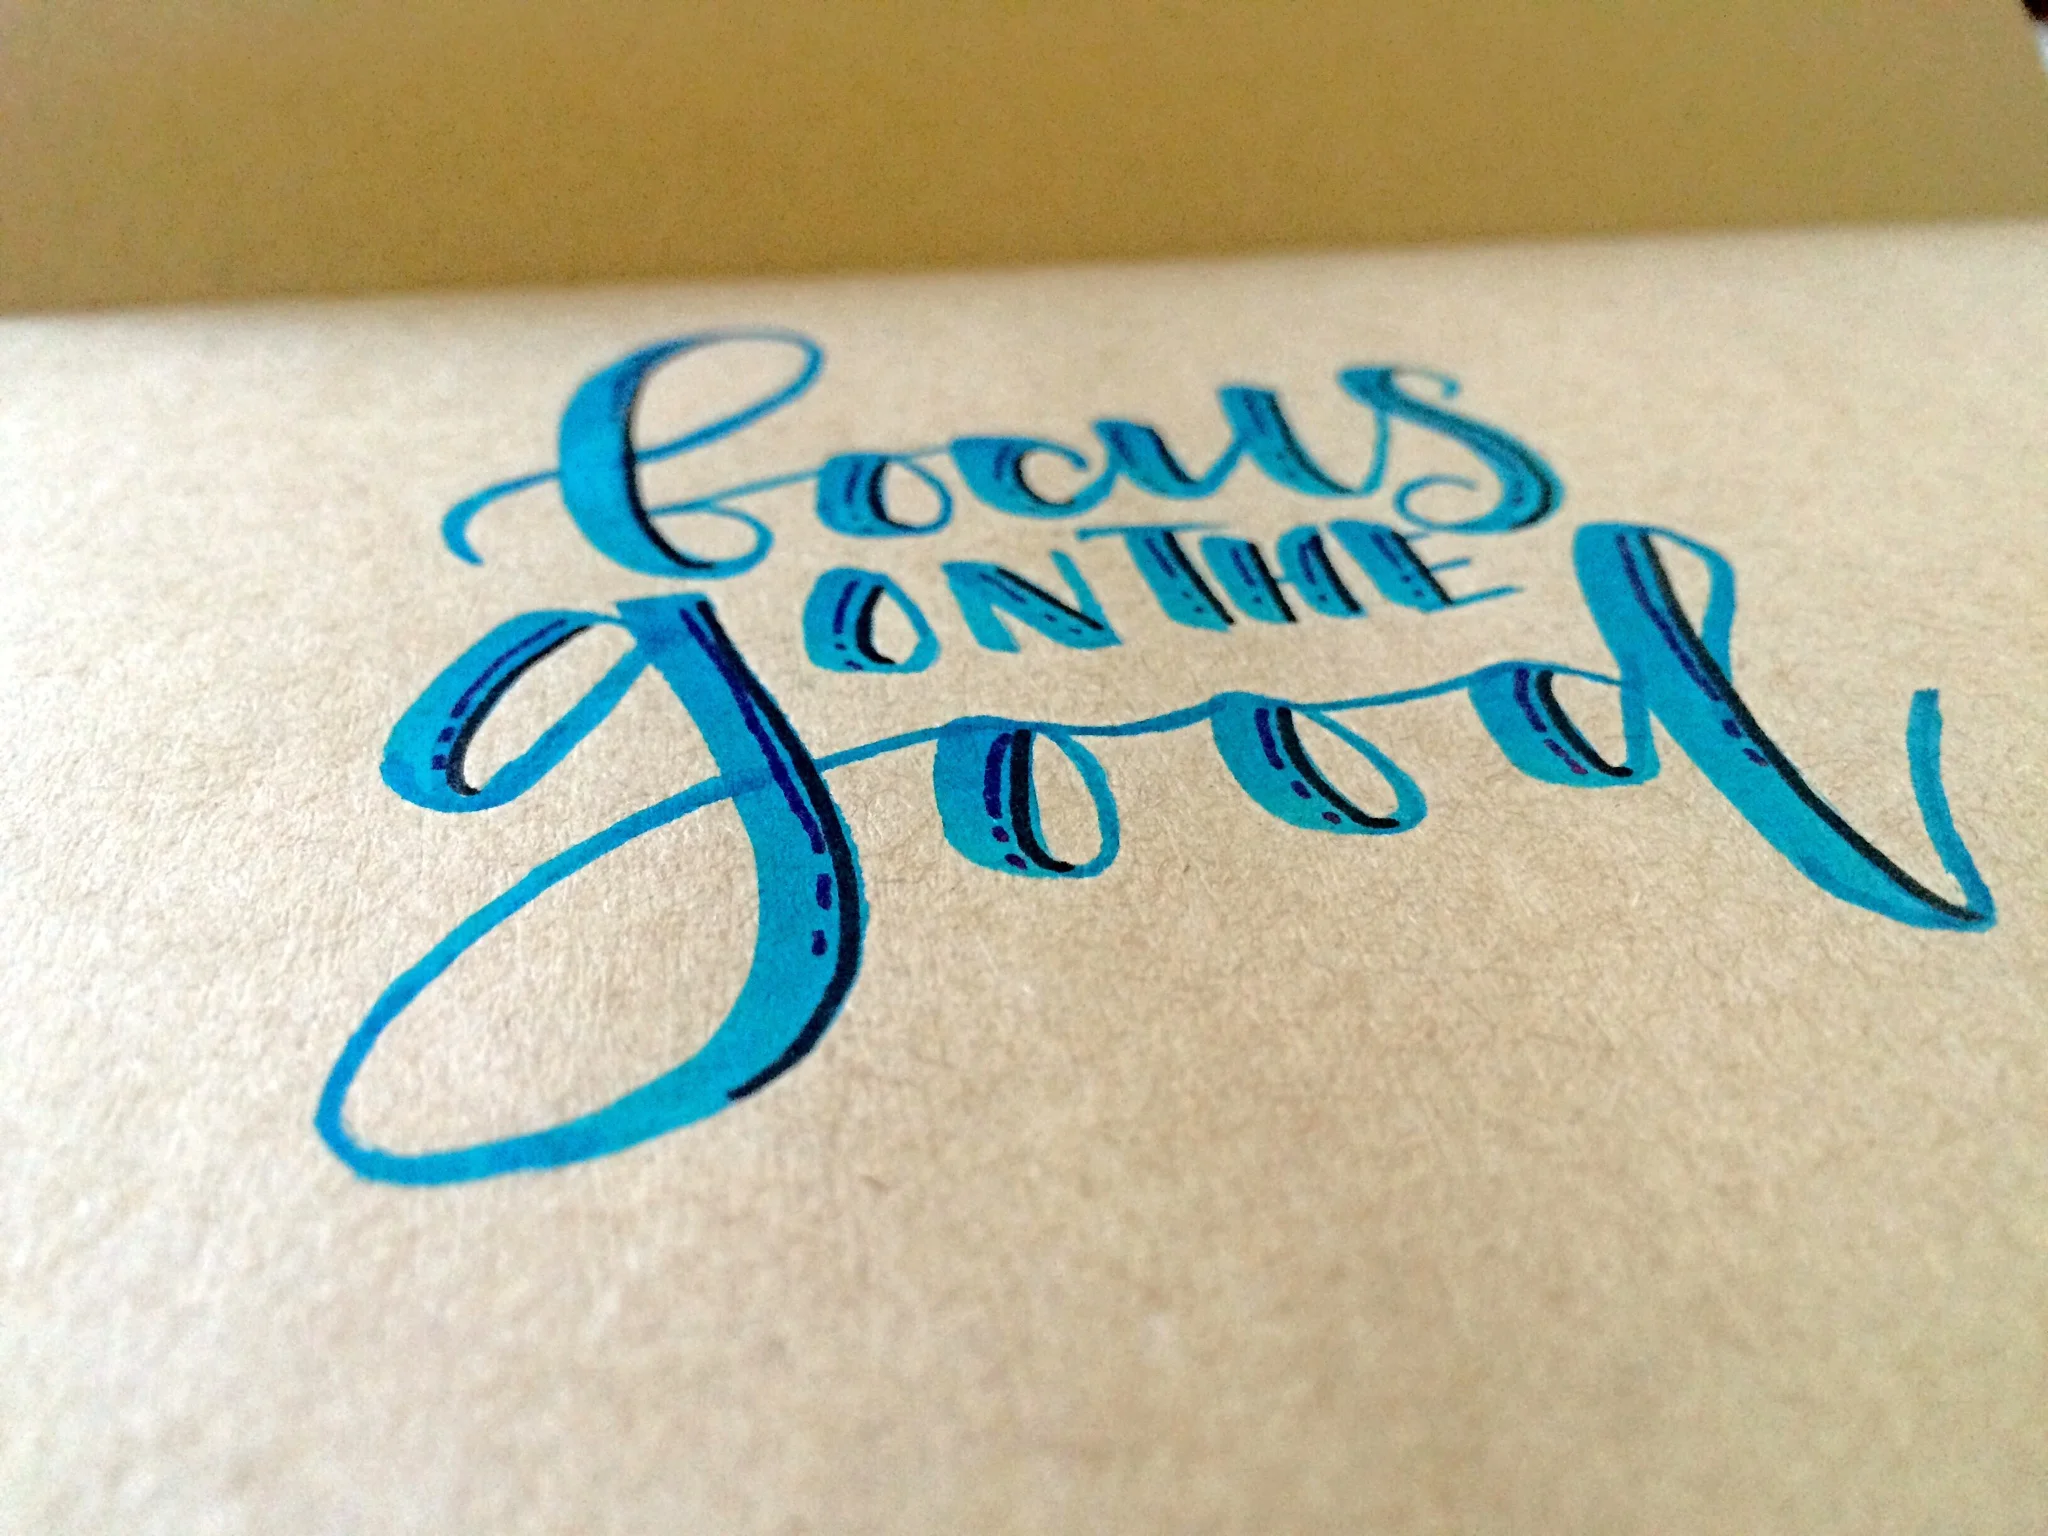 focus
ON THE
good